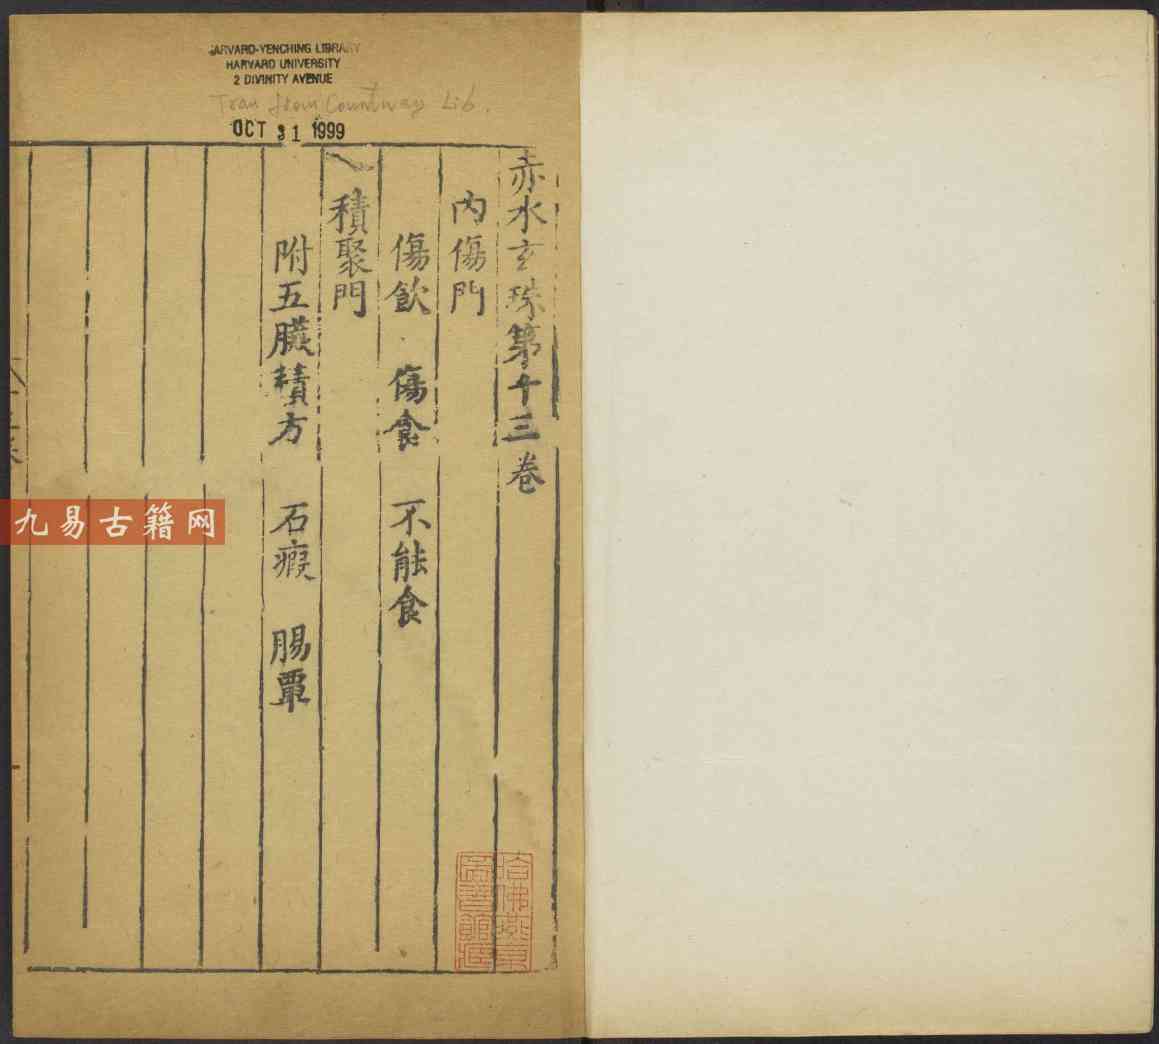 HARVARD-YENCHING LIBRARY
HARVARD UNIVERSITY
2 DIVINITY AVENUE
Tran from Countway Lib.
OCT 31 1999
赤水玄珠第十三卷
內傷門
傷飲 傷食 不能食
積聚門
附五臟積方 石瘕 腸覃
九易古籍网
哈佛燕京
圖書館藏